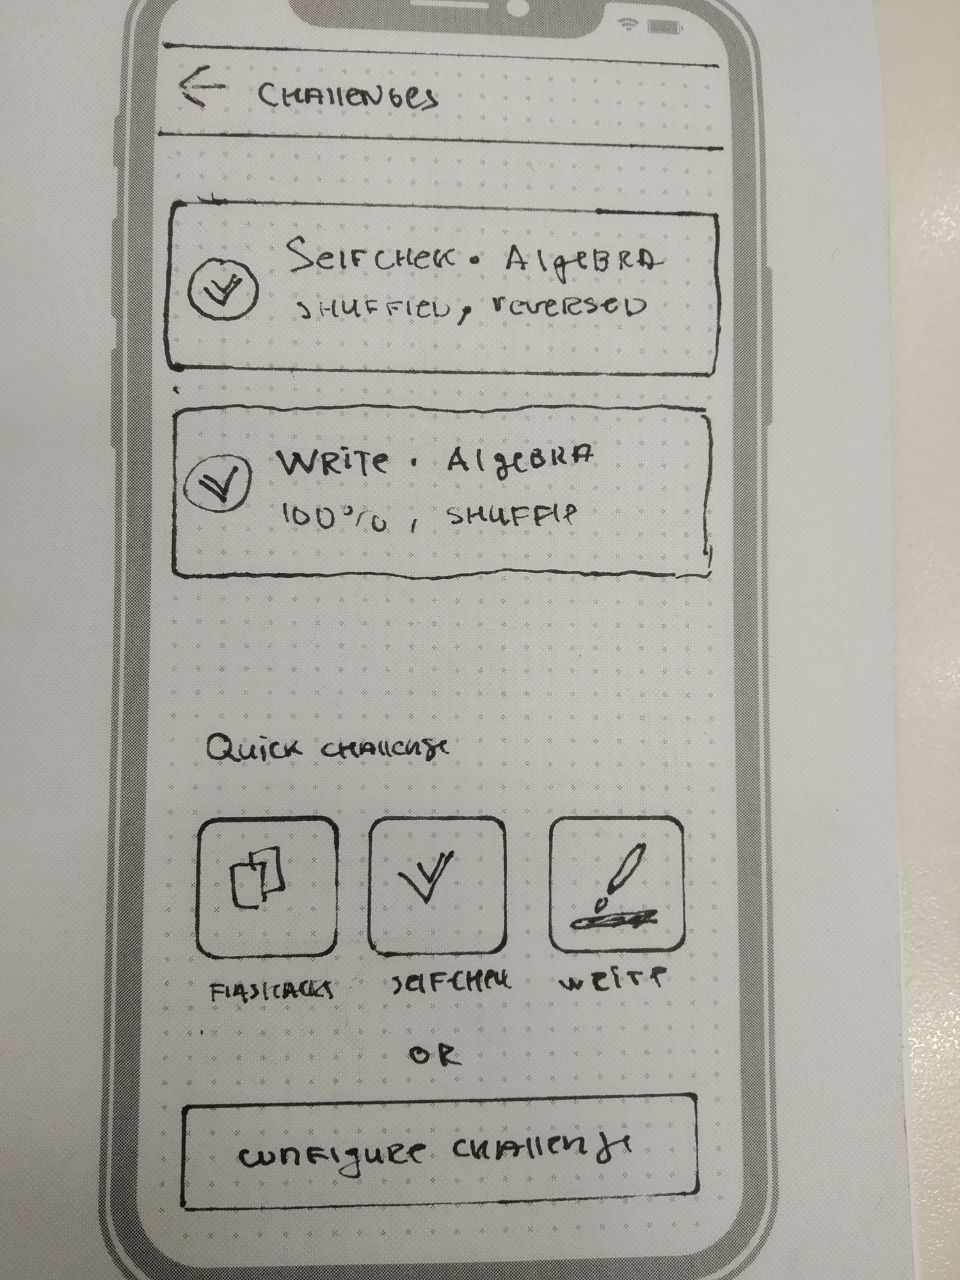 ← CHAllENGES
SelFCHEK • AlgeBRA
SHUFFlED, reveRSED
WRiTe • AlgeBRA
100%, SHUFFlE
Quick CHAllenge
SelF-CHEK
WRiTE
OR
CONFIgURE CHAllenge